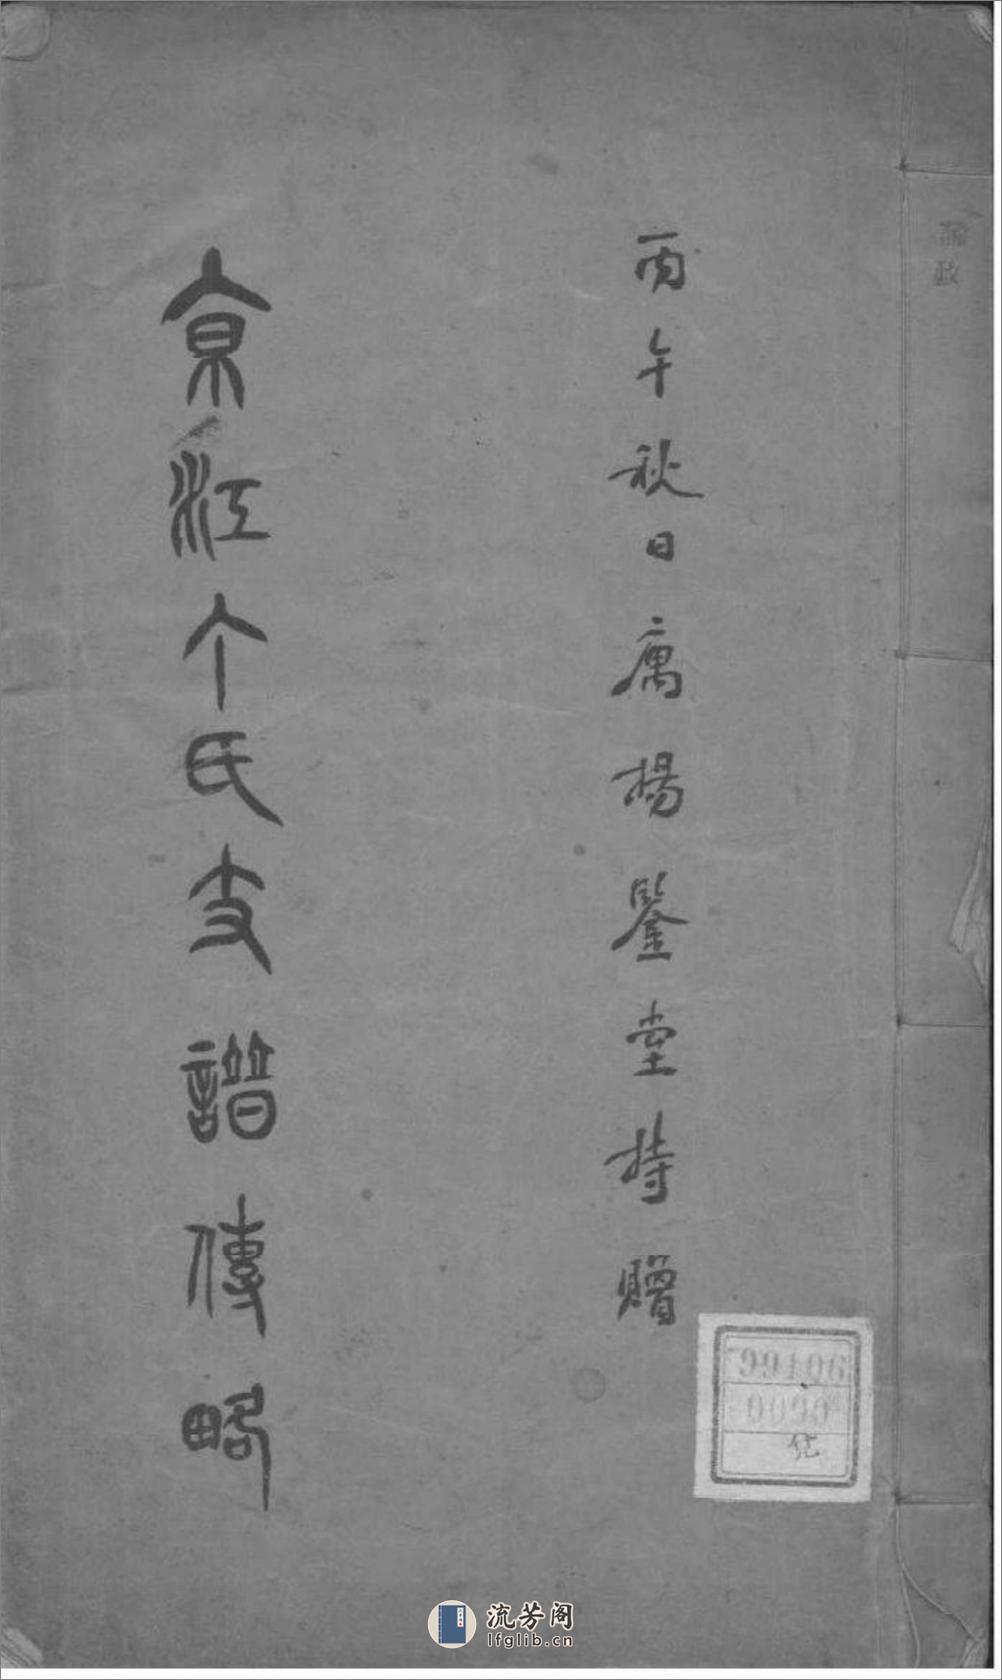 丙午秋日庽揚鑒堂持贈
京江个氏支譜傳略
0090
流芳阁
lfglib.cn